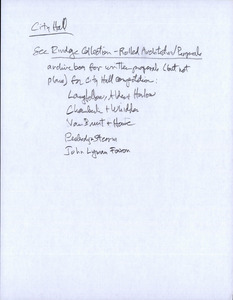 City Hall
See Rindge Collection - Rolled Architects/Proposals
archive box for written proposals (but not
plans) for City Hall competition:
Longfellow, Alden & Harlow
Chamberlin & Whidden
Van Brunt & Howe
Peabody & Stearns
John Lyman Faxon